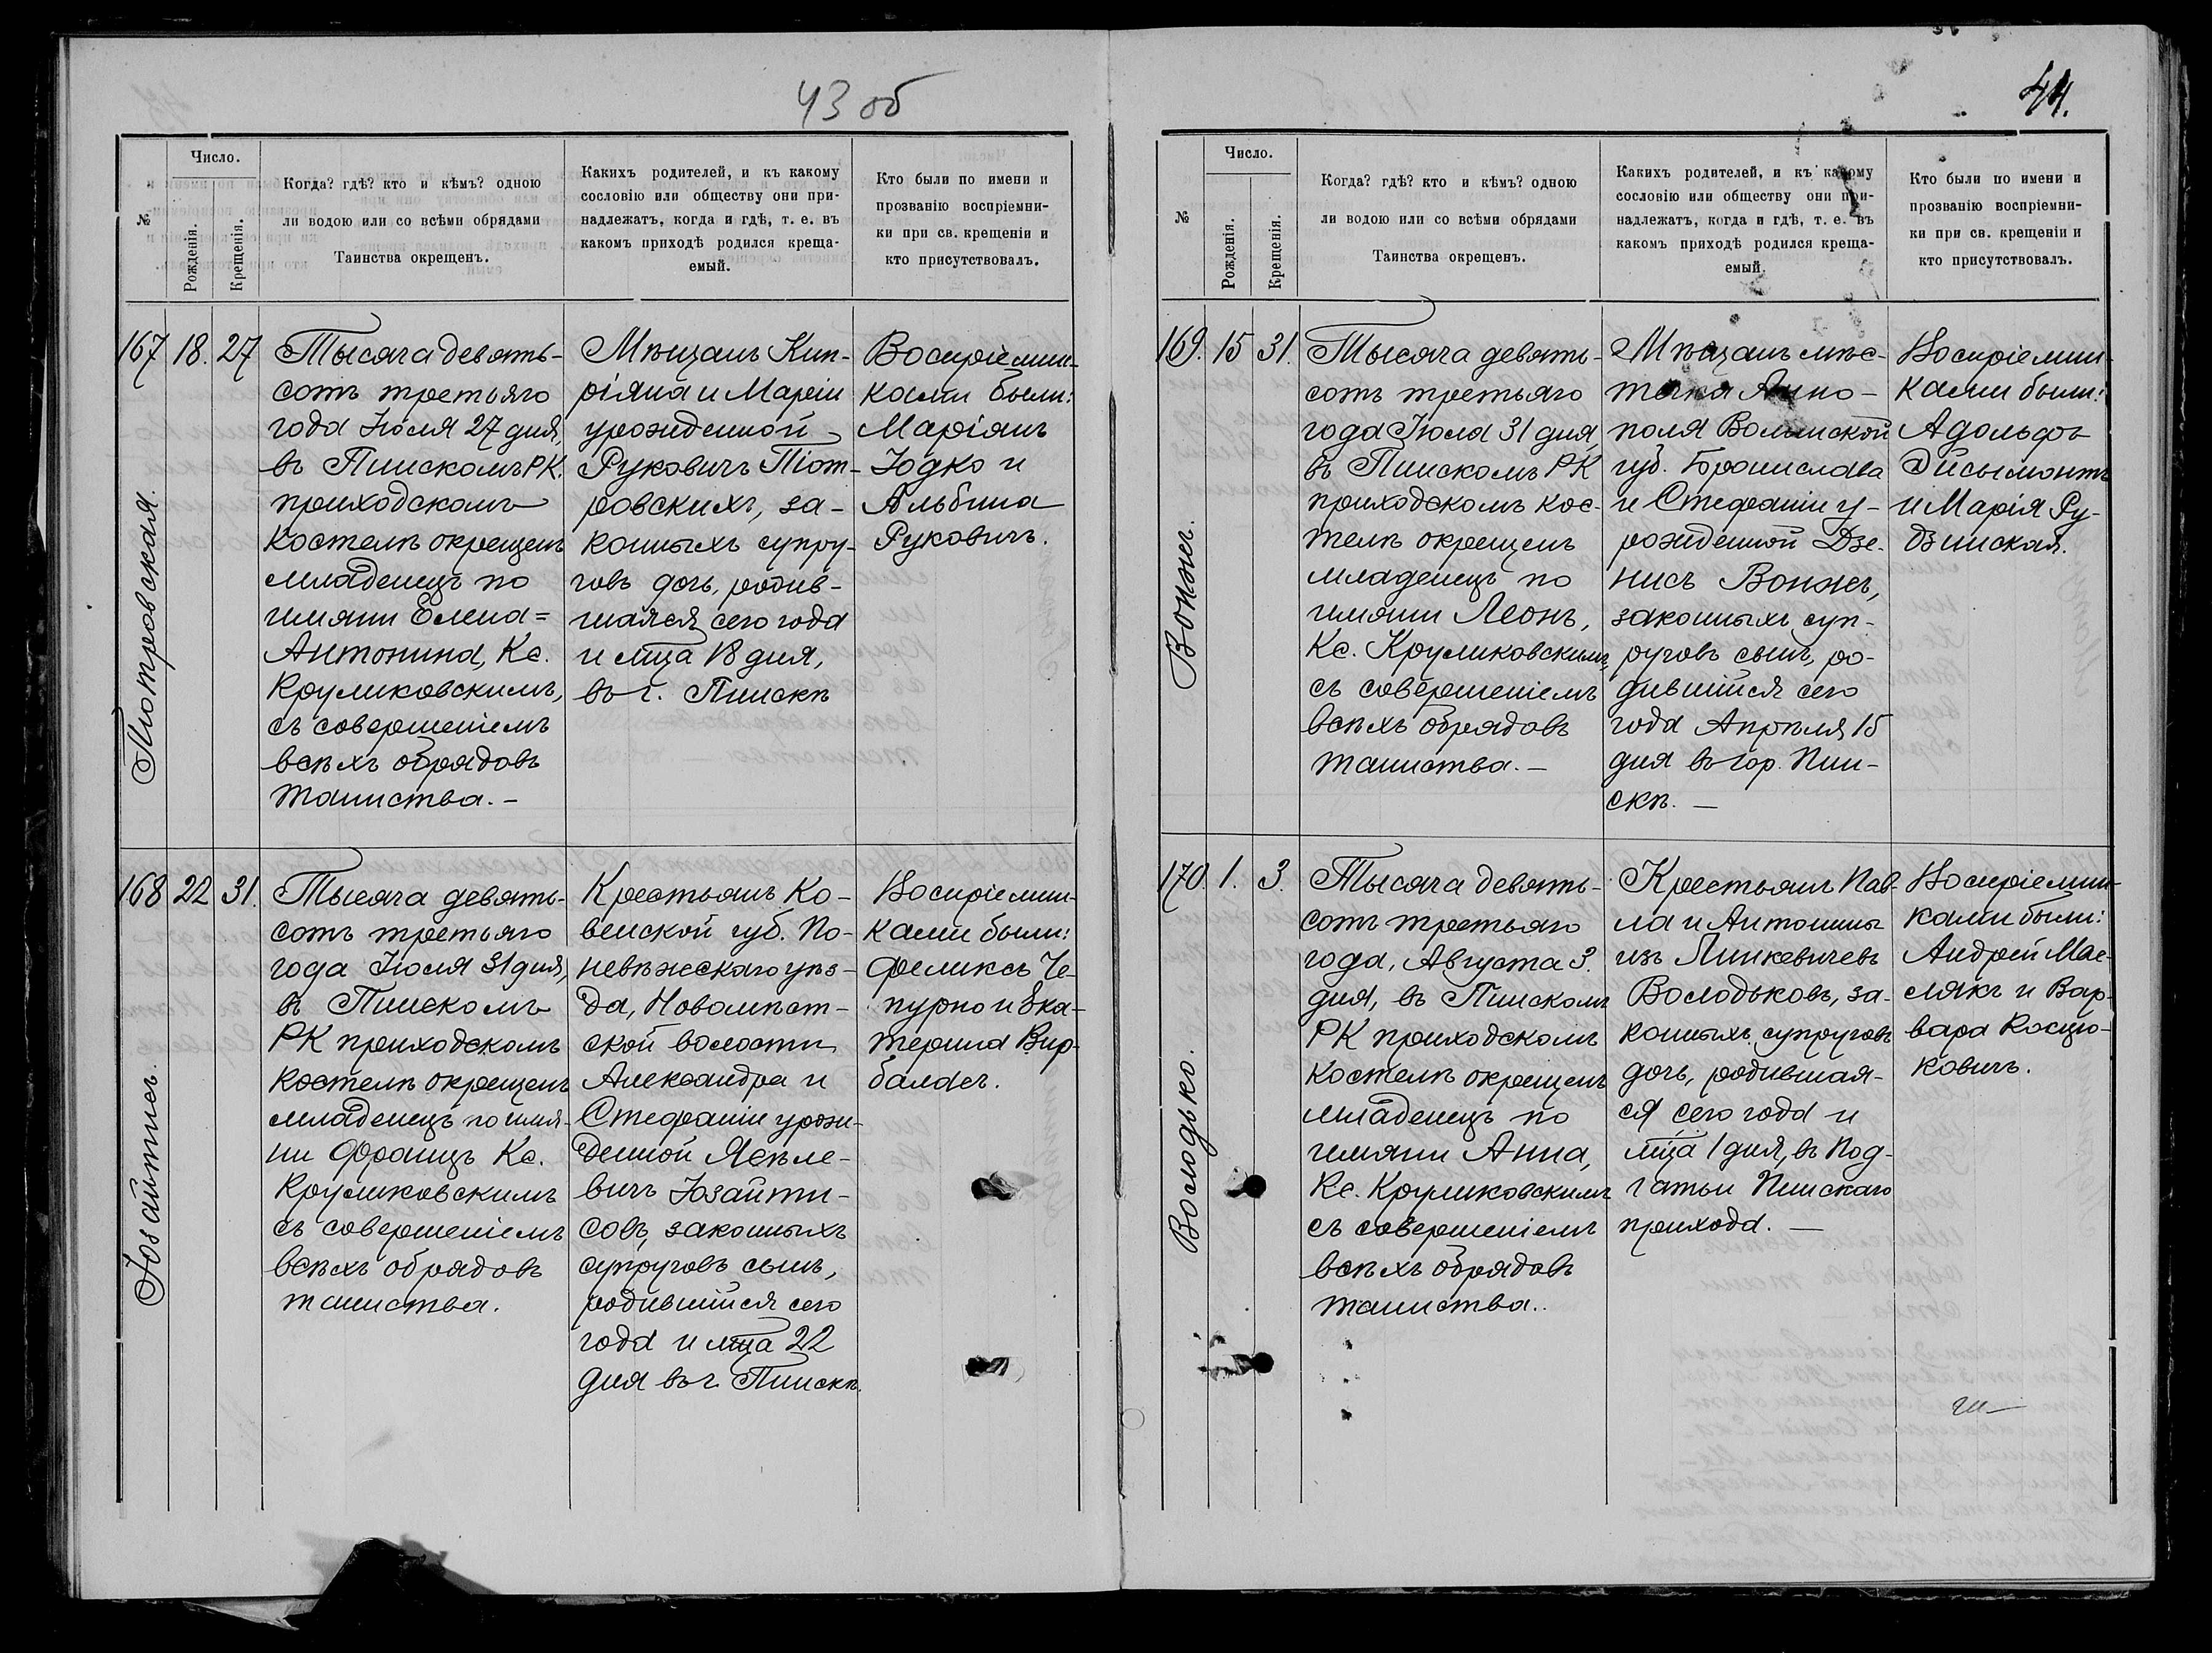 43 об
№
Число.
Рожденія.
Крещенія.
Когда? гдѣ? кто и кѣмъ? одною
ли водою или со всѣми обрядами
Таинства окрещенъ.
Какихъ родителей, и къ какому
сословію или обществу они при-
надлежатъ, когда и гдѣ, т. е. въ
какомъ приходѣ родился креща-
емый.
Кто были по имени и
прозванію воспріемни-
ки при св. крещеніи и
кто присутствовалъ.
167
Піотровская.
18.
27
Тысяча девять-
сотъ третьяго
года Іюля 27 дня,
въ Пинскомъ РК.
приходскомъ
костелѣ окрещенъ
младенецъ по
имяни Елена=
Антонина, Кс.
Круликовскимъ,
съ совершеніемъ
всѣхъ обрядовъ
таинства. -
Мѣщанъ Кип-
ріяна и Маріи
урожденной
Руковичъ Піот-
ровскихъ, за-
конныхъ супру-
говъ дочь, родив-
шаяся сего года
и мца 18 дня,
въ г. Пинскѣ
Воспріемни-
ками были:
Маріянъ
Юдко и
Альбина
Руковичъ.
168
Юозайтись.
22
31.
Тысяча девять-
сотъ третьяго
года Іюля 31 дня,
въ Пинскомъ
РК приходскомъ
костелѣ окрещенъ
младенецъ по имя-
ни Францъ Кс.
Круликовскимъ
съ совершеніемъ
всѣхъ обрядовъ
таинства.
Крестьянъ Ко-
венской губ. По-
невѣжскаго уѣз-
да, Новомѣст-
ской волости
Александра и
Стефаніи урож-
денной Ясѣле-
вичъ Юзайти-
совъ, законныхъ
супруговъ сынъ,
родившійся сего
года и мца 22
дня въ г. Пинскѣ.
Воспріемни-
ками были:
Феликсъ Че-
пурно и Ека-
терина Вир-
балисъ.
44.
№
Число.
Рожденія.
Крещенія.
Когда? гдѣ? кто и кѣмъ? одною
ли водою или со всѣми обрядами
Таинства окрещенъ.
Какихъ родителей, и къ какому
сословію или обществу они при-
надлежатъ, когда и гдѣ, т. е. въ
какомъ приходѣ родился креща-
емый.
Кто были по имени и
прозванію воспріемни-
ки при св. крещеніи и
кто присутствовалъ.
169.
Вонжъ.
15
31.
Тысяча девять-
сотъ третьяго
года Іюля 31 дня,
въ Пинскомъ РК
приходскомъ кос-
телѣ окрещенъ
младенецъ по
имяни Леонъ,
Кс. Круликовскимъ
съ совершеніемъ
всѣхъ обрядовъ
таинства. -
Мѣщанъ мѣс-
течка Анно-
поля Волынской
губ. Бронислава
и Стефаніи у-
рожденной Дзе-
нисъ Вонжъ,
законныхъ суп-
руговъ сынъ, ро-
дившійся сего
года Апрѣля 15
дня въ гор. Пин-
скѣ. -
Воспріемни-
ками были:
Адольфъ
Дисымонтъ
и Марія Ру-
дзинская.
170.
Володько.
1.
3.
Тысяча девять-
сотъ третьяго
года, Августа 3.
дня, въ Пинскомъ
РК приходскомъ
костелѣ окрещенъ
младенецъ по
имяни Анна,
Кс. Круликовскимъ
съ совершеніемъ
всѣхъ обрядовъ
таинства..
Крестьянъ Пав-
ла и Антонины
изъ Линкевичевъ
Володьковъ, за-
конныхъ супруговъ
дочь, родившая-
ся сего года и
мца 1 дня, въ Под-
гатьи Пинскаго
прихода. -
Воспріемни-
ками были:
Андрей Мас-
лякъ и Вар-
вара Косцю-
ковичъ.